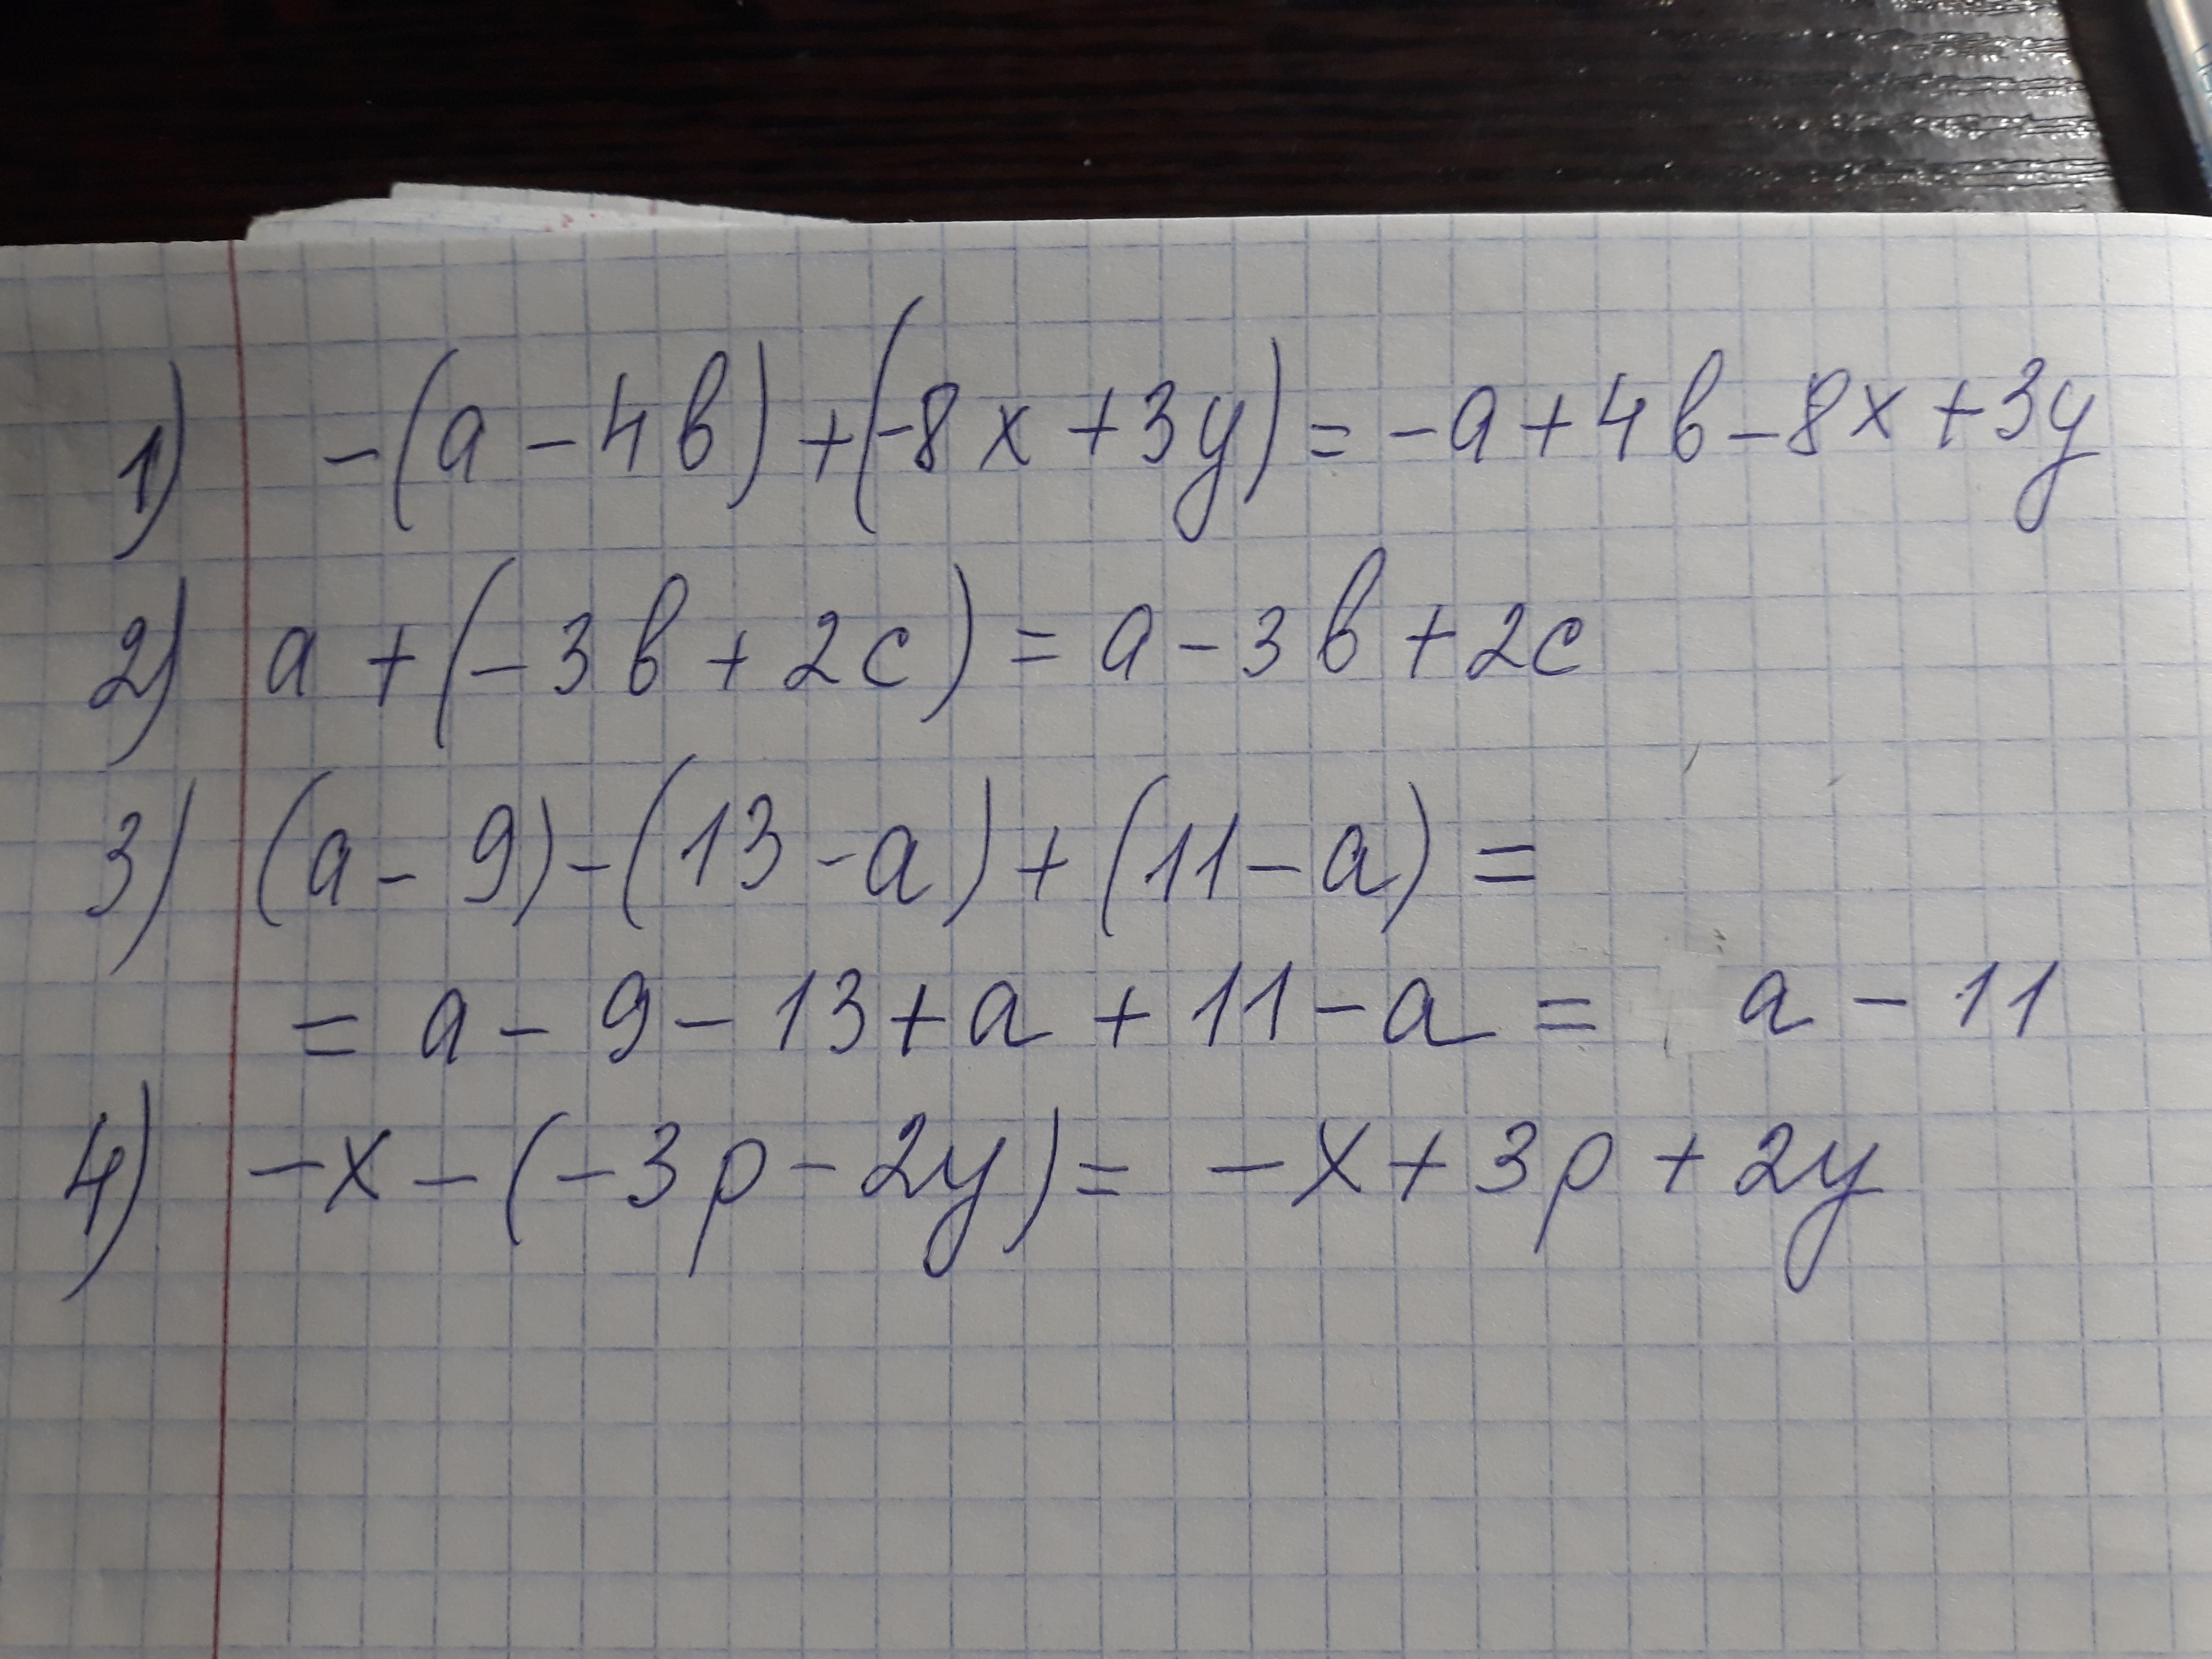 1) -(a-4в)+(-8x+3y)=-a+4в-8x+3y
2) a+(-3в+2c)=a-3в+2c
3) (a-9)-(13-a)+(11-a)=
=a-9-13+a+11-a= a-11
4) -x-(-3p-2y)=-x+3p+2y